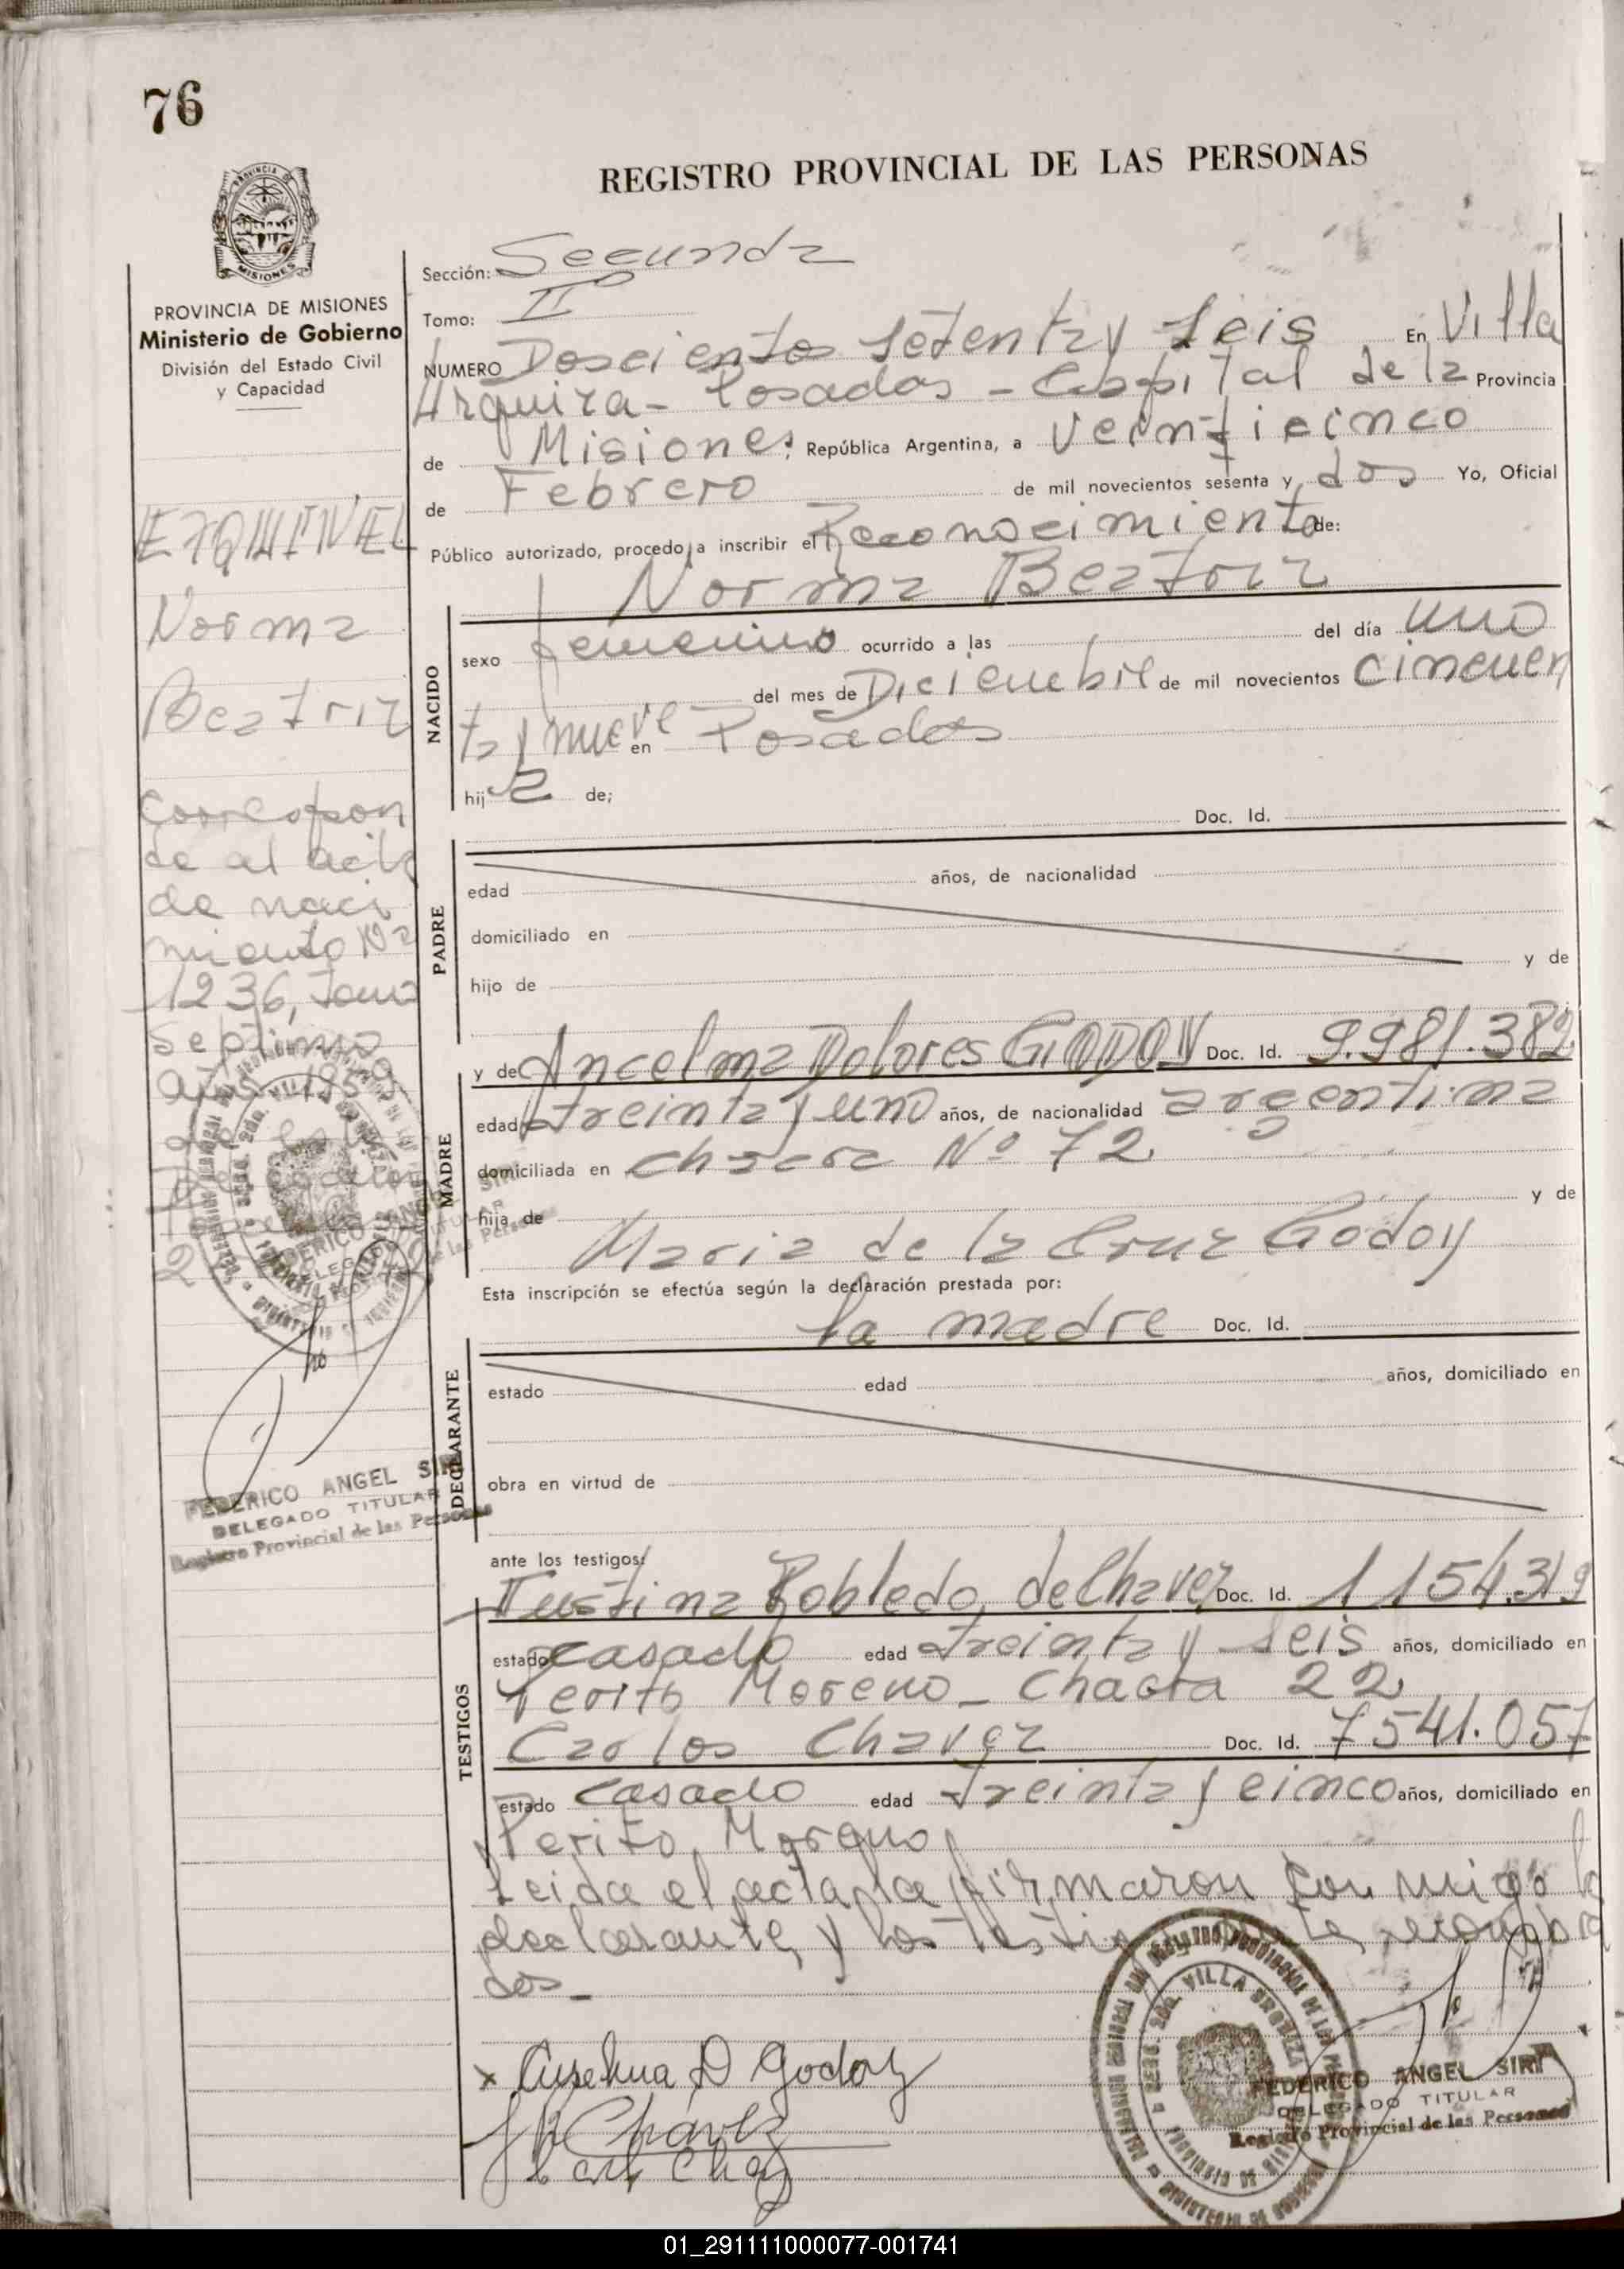 76
REGISTRO PROVINCIAL DE LAS PERSONAS
PROVINCIA DE MISIONES
MISIONES
PROVINCIA DE MISIONES
Ministerio de Gobierno
División del Estado Civil
y Capacidad
EZQUIVEL
Norma
Beatriz
Correspon
de al acta
de naci
miento Nº
1236, Tomo
Septimo
año 1959
FEDERICO ANGEL SIRI
DELEGADO TITULAR
Registro Provincial de las Personas
Sección: Segunda
Tomo: II
NUMERO Doscientos setenta y seis En Villa
Urquiza - Posadas - Capital de la Provincia
de Misiones. República Argentina, a Veinticinco
de Febrero de mil novecientos sesenta y dos Yo, Oficial
Público autorizado, procedo a inscribir el Reconocimiento de:
Norma Beatriz
NACIDO
sexo femenino ocurrido a las del día uno
del mes de Diciembre de mil novecientos cincuen
ta y nueve en Posadas
hij a de;
Doc. Id.
PADRE
edad años, de nacionalidad
domiciliado en
hijo de y de
y de Ancelma Dolores GODOY Doc. Id. 9.981.382
MADRE
edad treinta y uno años, de nacionalidad argentina
domiciliada en chacra Nº 72
hija de y de
Maria de la Cruz Godoy
Esta inscripción se efectúa según la declaración prestada por:
la madre Doc. Id.
DECLARANTE
estado edad años, domiciliado en
obra en virtud de
ante los testigos:
Justina Robledo de Chavez Doc. Id. 1154319
TESTIGOS
estado casado edad treinta y seis años, domiciliado en
Perito Moreno - Chacra 22
Carlos Chavez Doc. Id. 7541.057
estado casado edad treinta y cinco años, domiciliado en
Perito Moreno
Leida el acta la firmaron con migo la
declarante, y los
dos -
x Anselma D Godoy
Chávez
FEDERICO ANGEL SIRI
DELEGADO TITULAR
Registro Provincial de las Personas
VILLA URQUIZA
01_291111000077-001741